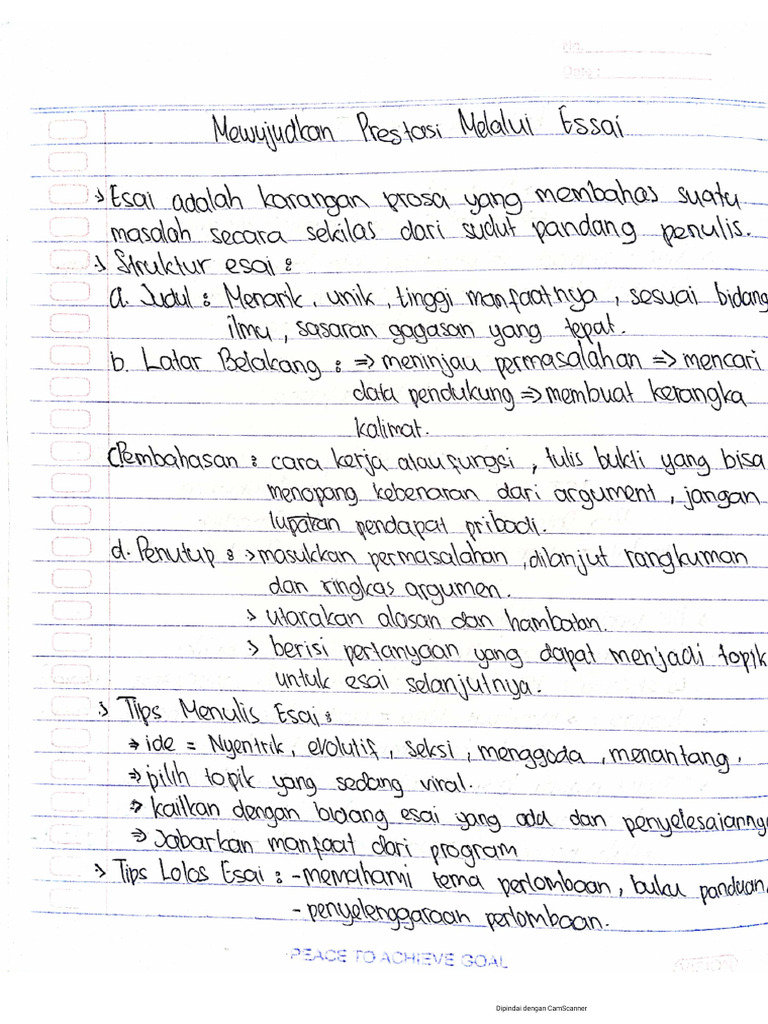 No.
Date :
Mewujudkan Prestasi Melalui Essai
> Esai adalah karangan prosa yang membahas suatu
masalah secara sekilas dari sudut pandang penulis.
> Struktur esai :
a. Judul : Menarik, unik, tinggi manfaatnya, sesuai bidang
ilmu, sasaran gagasan yang tepat.
b. Latar Belakang : => meninjau permasalahan => mencari
data pendukung => membuat kerangka
kalimat.
C. Pembahasan : cara kerja atau fungsi, tulis bukti yang bisa
menopang kebenaran dari argument, jangan
lupakan pendapat pribadi.
d. Penutup : > masukkan permasalahan, dilanjut rangkuman
dan ringkas argumen.
> utarakan alasan dan hambatan.
> berisi pertanyaan yang dapat menjadi topik
untuk esai selanjutnya.
> Tips Menulis Esai :
=> ide = Nyentrik, evolutif, seksi, menggoda, menantang.
=> pilih topik yang sedang viral.
=> kaitkan dengan bidang esai yang ada dan penyelesaianny
=> Jabarkan manfaat dari program
> Tips Lolos Esai : - memahami tema perlombaan, buku panduan,
- penyelenggaraan perlombaan.
PEACE TO ACHIEVE GOAL
Dipindai dengan CamScanner